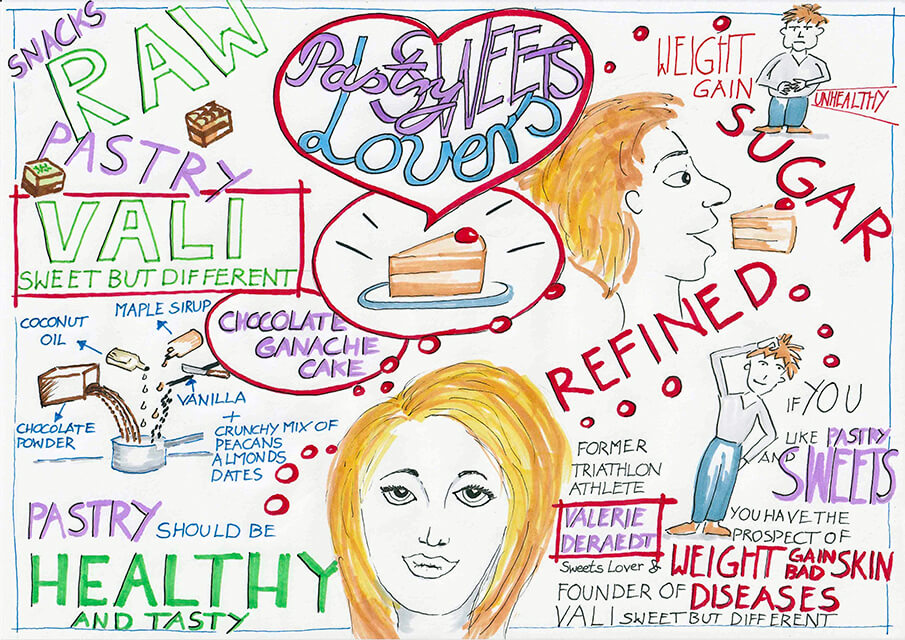 SNACKS
RAW
PASTRY
VALI
SWEET BUT DIFFERENT
Pastry SWEETS
Lovers
WEIGHT
GAIN
UNHEALTHY
SUGAR
REFINED
COCONUT
OIL
MAPLE SIRUP
CHOCOLATE
GANACHE
CAKE
CHOCOLATE
POWDER
VANILLA
+
CRUNCHY MIX OF
PEACANS
ALMONDS
DATES
PASTRY SHOULD BE
HEALTHY
AND TASTY
FORMER
TRIATHLON
ATHLETE
VALERIE
DERAEDT
Sweets Lover &
FOUNDER OF
VALI SWEET BUT DIFFERENT
IF YOU
LIKE PASTRY
AND SWEETS
YOU HAVE THE
PROSPECT OF
WEIGHT GAIN
BAD SKIN
DISEASES